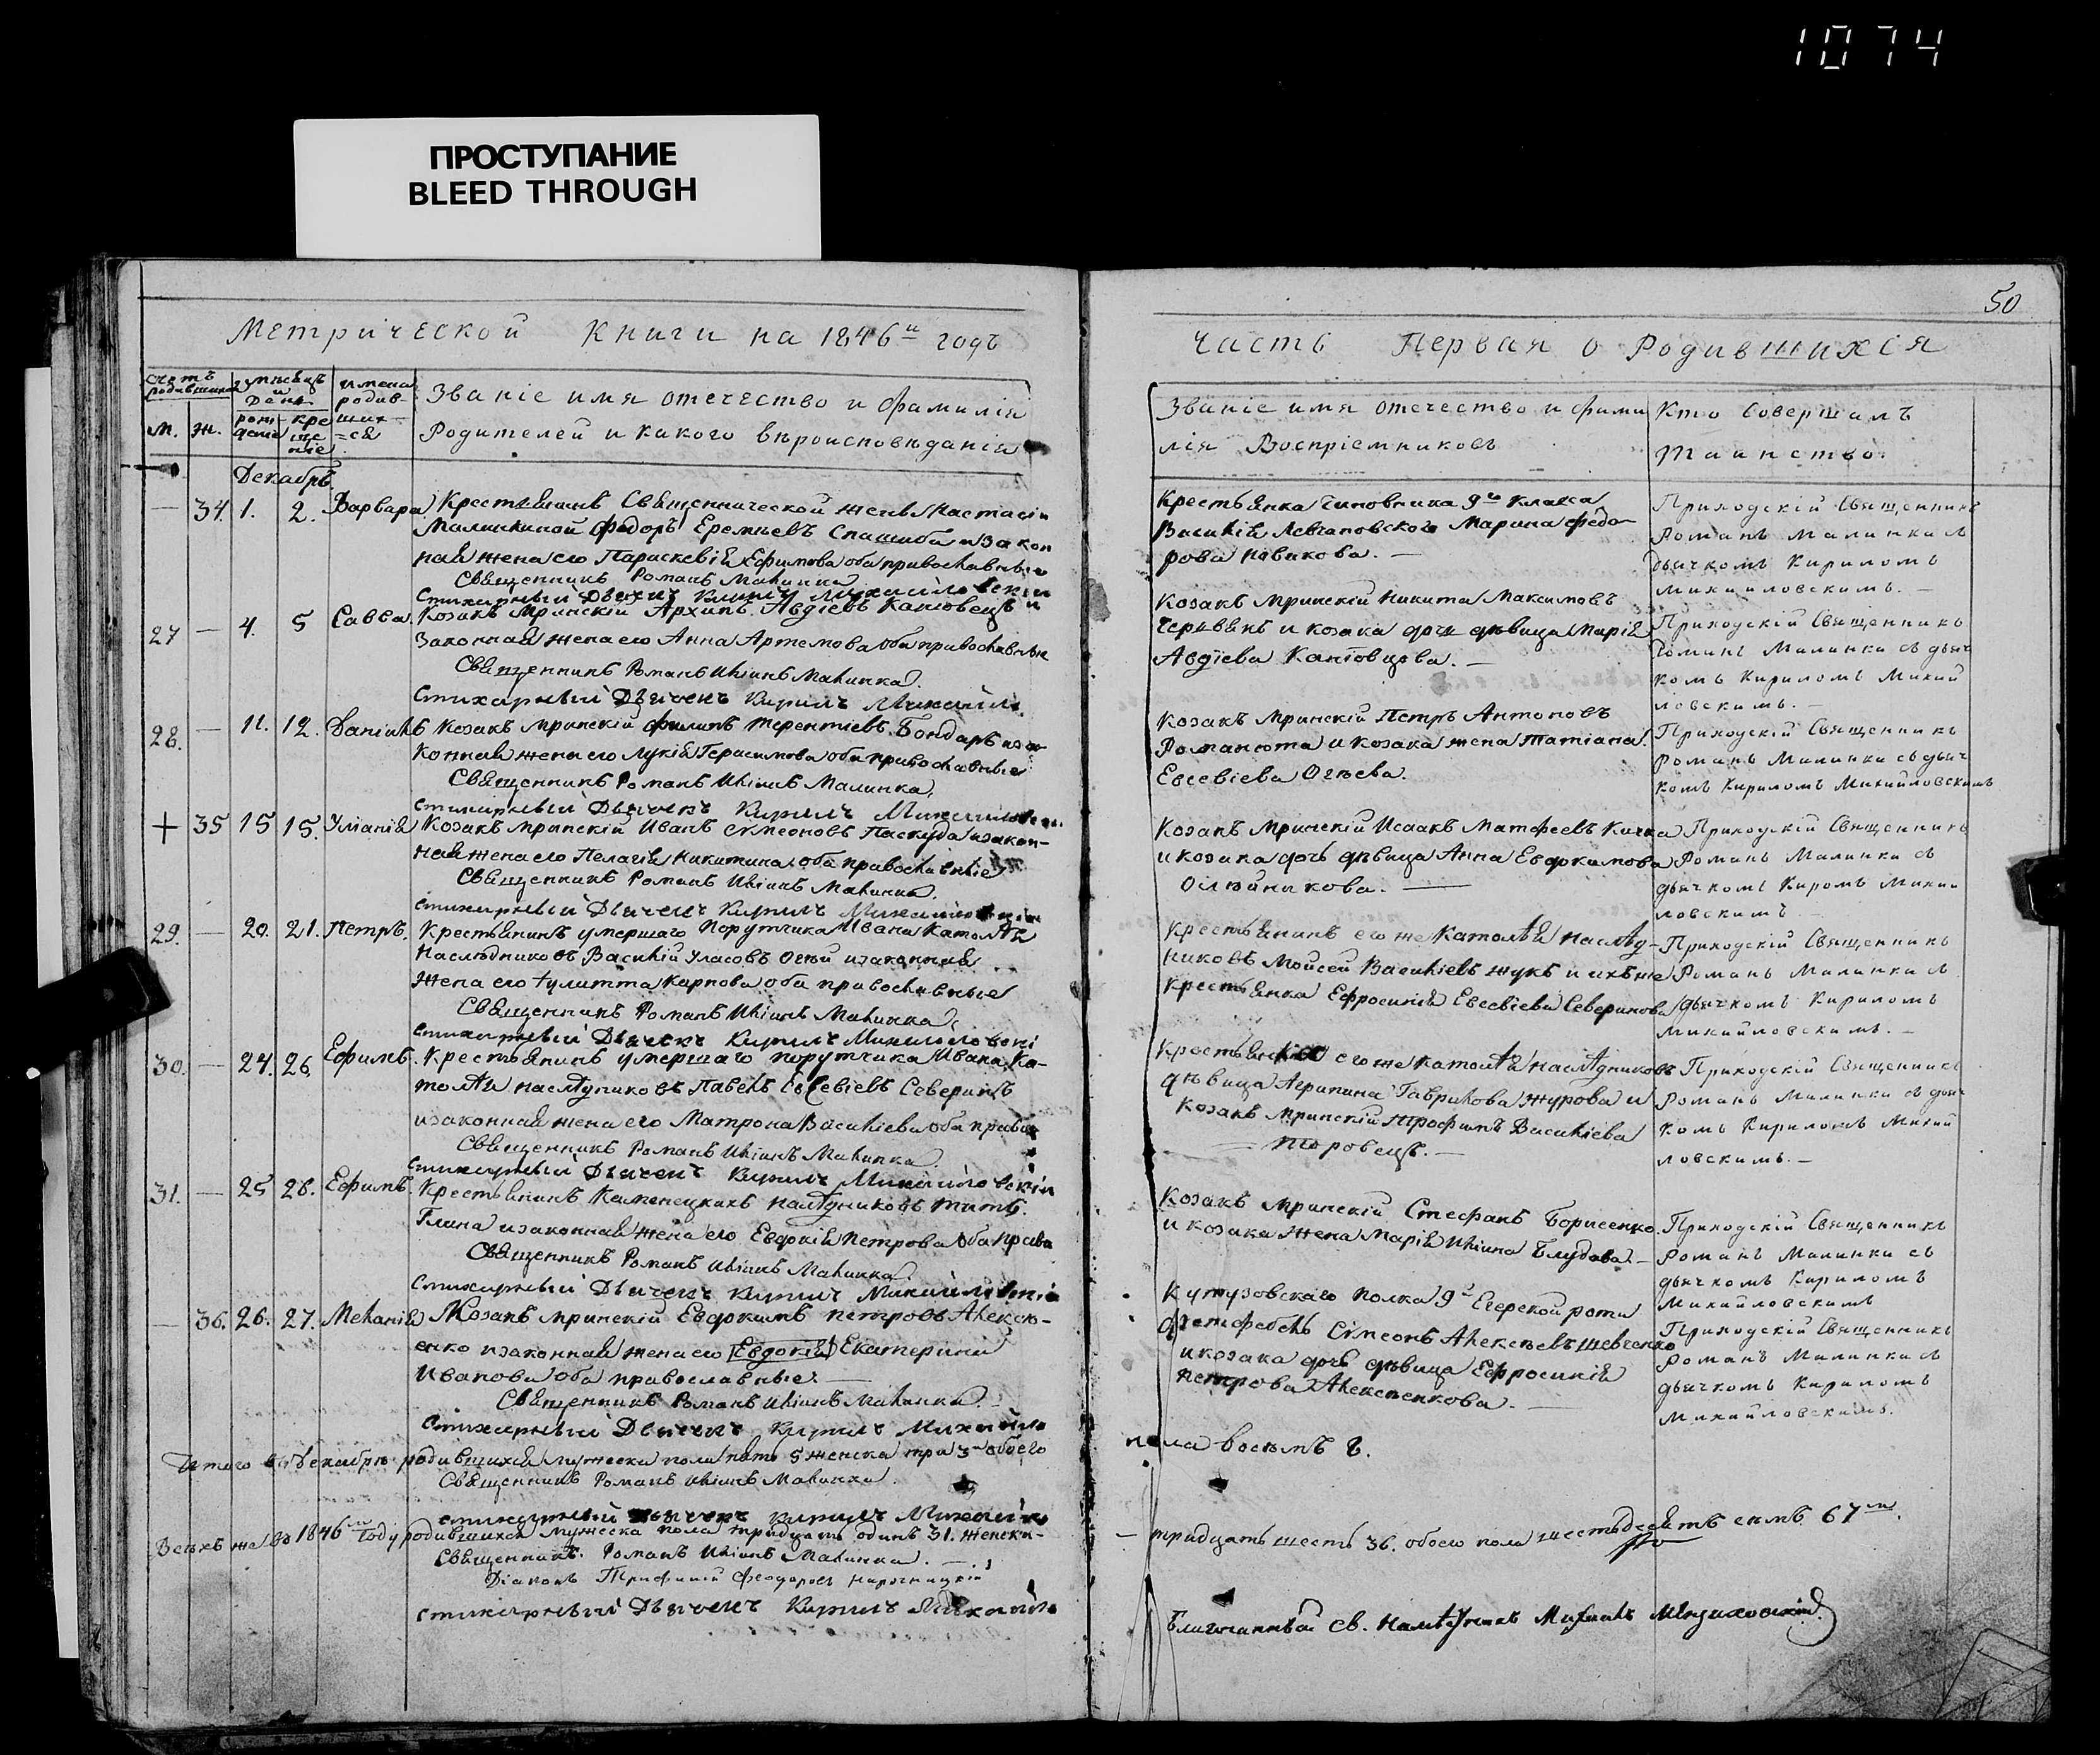 1074
ПРОСТУПАНИЕ
BLEED THROUGH
50
Метрической Книги на 1846й годъ
Часть Первая о Родившихся
счетъ родившихся
мѣсяцъ и день
имена родив-ших=ся
Званіе имя отечество и фамилія
Родителей и какого вѣроисповѣданія
м. ж.
рожденіе крещеніе
Званіе имя отечество и фами
лія Воспріемниковъ
Кто Совершалъ
Таинство
Декабрь.
— 34. 1. 2. Варвара
Крестьянинъ Священнической жены Настасіи
Малинкиной Федоръ Еремѣевъ Спашиба и закон
ная жена его Параскевія Ефимова оба православные
Священникъ Романъ Малинка
Стихарный Дьячекъ Кирилъ Михайловскій
Крестьянка чиновника 9го класа
Василія Левановского Марина Федо-
рова Новикова. —
Приходскій Священникъ
Романъ Малинка съ
дьячкомъ Кириломъ
Михайловскимъ. —
27 — 4. 5 Савва.
Козакъ Мринскій Архипъ Авдіевъ Кантовецъ и
Законная жена его Анна Артемова оба православные
Священникъ Романъ Иліинъ Малинка.
Стихарный Дьячекъ Кирилъ Михайло
Козакъ Мринскій Никита Максимовъ
Черивенъ и козака дочь дѣвица Марія
Авдіева Кантовцова. —
Приходскій Священникъ
Романъ Малинка съ дьяч
комъ Кириломъ Михай
ловскимъ. —
28. — 11. 12. Даніилъ
Козакъ Мринскій Филипъ Терентіевъ Бондарь и за
конная жена его Лукія Герасимова оба православные
Священникъ Романъ Иліинъ Малинка.
Стихарный Дьячекъ Кирилъ Михайловскі
Козакъ Мринскій Петръ Антоновъ
Романюта и козака жена Татіана
Евсевіева Огѣева.
Приходскій Священникъ
Романъ Малинка съ дьяч
комъ Кириломъ Михайловскимъ
+ 35 15 15. Уліанія
Козакъ Мринскій Иванъ Симеоновъ Паскуда и закон-
ная жена его Пелагія Никитина оба православные
Священникъ Романъ Иліинъ Малинка.
Стихарный Дьячекъ Кирилъ Михайловскій
Козакъ Мринскій Исаакъ Матфеевъ Кичка
и козака дочь дѣвица Анна Евдокимова
Олѣйникова. —
Приходскій Священникъ
Романъ Малинка съ
дьячкомъ Киромъ Михай
ловскимъ —
29. — 20. 21. Петръ.
Крестьянинъ умершаго Порутчика Ивана Католѣя
Наслѣдниковъ Василій Уласовъ Огѣй и законная
жена его Іулитта Карпова оба православные
Священникъ Романъ Иліинъ Малинка.
Стихарный Дьячекъ Кирилъ Михайловскі
Крестьянинъ его же Католѣя наслѣд-
никовъ Мойсей Василіевъ Жукъ и ихъ же
крестьянка Ефросинія Евсевіева Северинова
Приходскій Священникъ
Романъ Малинка съ
дьячкомъ Кириломъ
Михайловскимъ. —
30. — 24. 26. Ефимъ.
Крестьянинъ умершаго порутчика Ивана Ка-
толѣя наслѣдниковъ Павелъ Евсевіевъ Северинъ
и законная жена его Матрона Василіева оба право
Священникъ Романъ Иліинъ Малинка.
Стихарный Дьячекъ Кирилъ Михайловскій
его же Католѣя наслѣдниковъ
дѣвица Агрипина Гаврилова Журова и
Козакъ Мринскій Трофимъ Василіева
— Торовецъ. —
Приходскій Священникъ
Романъ Малинка съ дьяч
комъ Кириломъ Михай
ловскимъ. —
31. — 25 26. Ефимъ.
Крестьянинъ Каменецкихъ наслѣдниковъ Титъ
Глина и законная жена его Евдокія Петрова оба право
Священникъ Романъ Иліинъ Малинка.
Стихарный Дьячекъ Кирилъ Михайловскі
Козакъ Мринскій Стефанъ Борисенко
и козака жена Марія Иліина Блудова. —
Приходскій Священникъ
Романъ Малинка съ
дьячкомъ Кириломъ
Михайловскимъ
— 36. 26. 27. Меланія
Козакъ Мринскій Евдокимъ Петровъ Алексю-
енко и законная жена его Евдокія Екатерина
Иванова оба православные —
Священникъ Романъ Иліинъ Малинка.
Стихарный Дьячекъ Кирилъ Михайло
Кутузовскаго полка 9й Егерской роти
фетфебель Симеонъ Алексѣевъ Шевченко
и козака дочь дѣвица Ефросинія
Петрова Алексеенкова. —
Приходскій Священникъ
Романъ Малинка съ
дьячкомъ Кириломъ
Михайловскимъ.
Итого въ Декабрѣ родившихся мужеска пола пять 5 женска три 3 обоего
пола восемь 8.
Священникъ Романъ Иліинъ Малинка.
Стихарный Дьячекъ Кирилъ Михайло
Всѣхъ же въ 1846м году родившихся мужеска пола тридцать одинъ 31. женска-
— тридцать шесть 36. обоего пола шестьдесятъ семь 67м.
Священникъ Романъ Иліинъ Малинка. —
Діаконъ Феодоровъ
Стихарный Дьячекъ Кирилъ Михайло
Благочинный св. Михаилъ